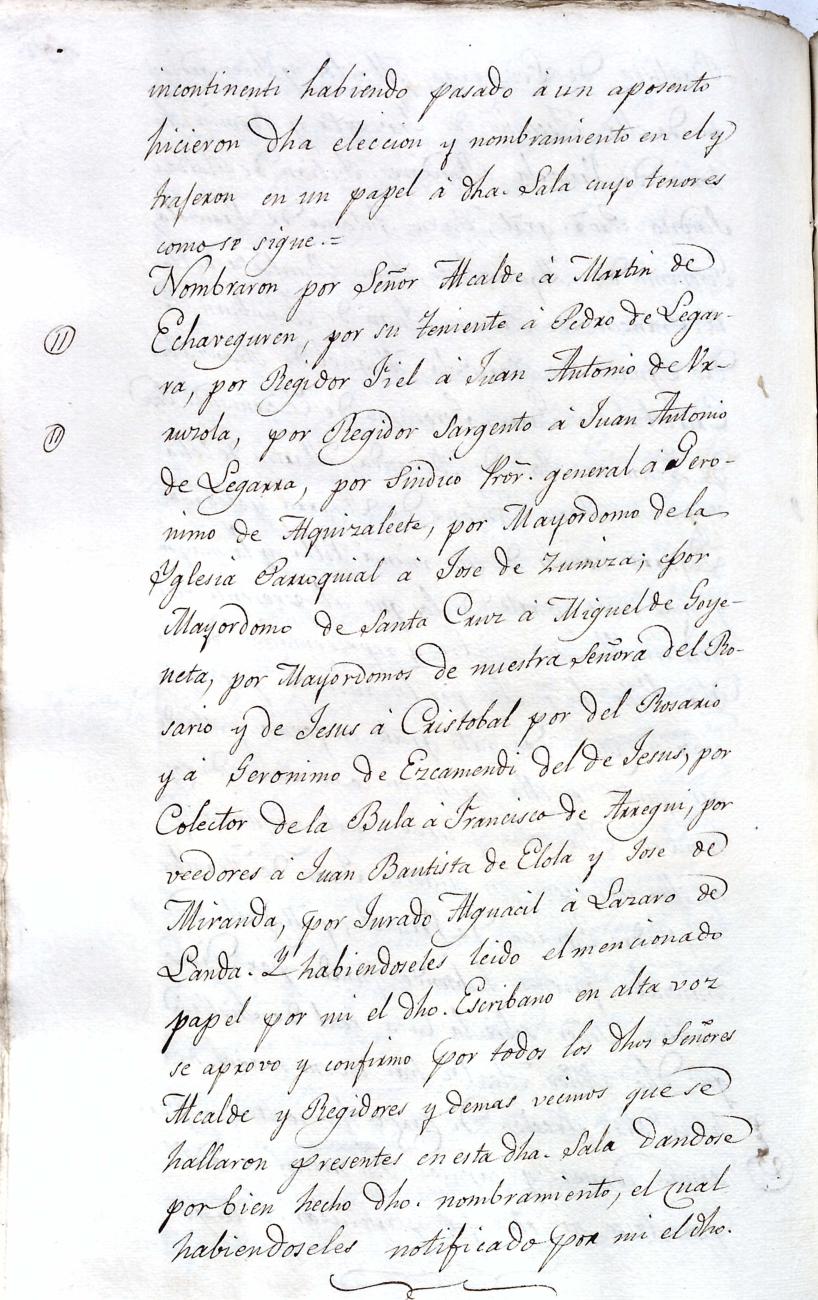 incontinenti habiendo pasado à un aposento
hicieron dha eleccion y nombramiento en el y
trajeron en un papel à dha. Sala cuyo tenor es
como se sigue.=
Nombraron por Señor Alcalde à Martin de
Echaveguren, por su Teniente à Pedro de Legar-
ra, por Regidor Fiel à Juan Antonio de Ur-
ruzola, por Regidor Sargento à Juan Antonio
de Legarra, por Sindico Pror. general à Gero-
nimo de Alquizalete, por Mayordomo de la
Yglesia Parroquial à Jose de Zumiza; por
Mayordomo de Santa Cruz à Miguel de Goye-
neta, por Mayordomos de nuestra Señora del Ro-
sario y de Jesus à Cristobal por del Rosario
y à Geronimo de Ezcamendi del de Jesus, por
Colector de la Bula à Francisco de Arregui, por
veedores à Juan Bautista de Elola y Jose de
Miranda, por Jurado Alguacil à Lazaro de
Landa. Y habiendoseles leido el mencionado
papel por mi el dho. Escribano en alta voz
se aprovo y confirmo por todos los dhos Señores
Alcalde y Regidores y demas vecinos que se
hallaron presentes en esta dha. Sala dandose
por bien hecho dho. nombramiento, el cual
habiendoseles notificado por mi el dho.
11
11